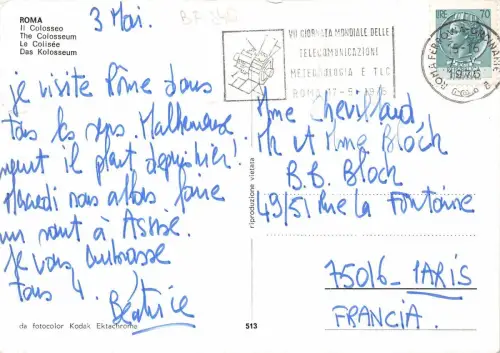 ROMA
Il Colosseo
The Colosseum
Le Colisée
Das Kolosseum
3 Mai.
je visite Rôme dans
tous les sens. Malheureuse
ment il pleut depuis hier!
Mardi nous allons faire
un saut à Assise.
Je vous embrasse
tous 4.
Béatrice
da fotocolor Kodak Ektachrome
513
riproduzione vietata
VII GIORNATA MONDIALE DELLE
TELECOMUNICAZIONI
METEOROLOGIA E TLC
ROMA 17-5-1976
LIRE 70
ROMA FERROVIA
1976
Mme Chevillard
Mr et Mme Bloch
B.B. Bloch
49/51 Rue La Fontaine
75016 - PARIS
FRANCIA.